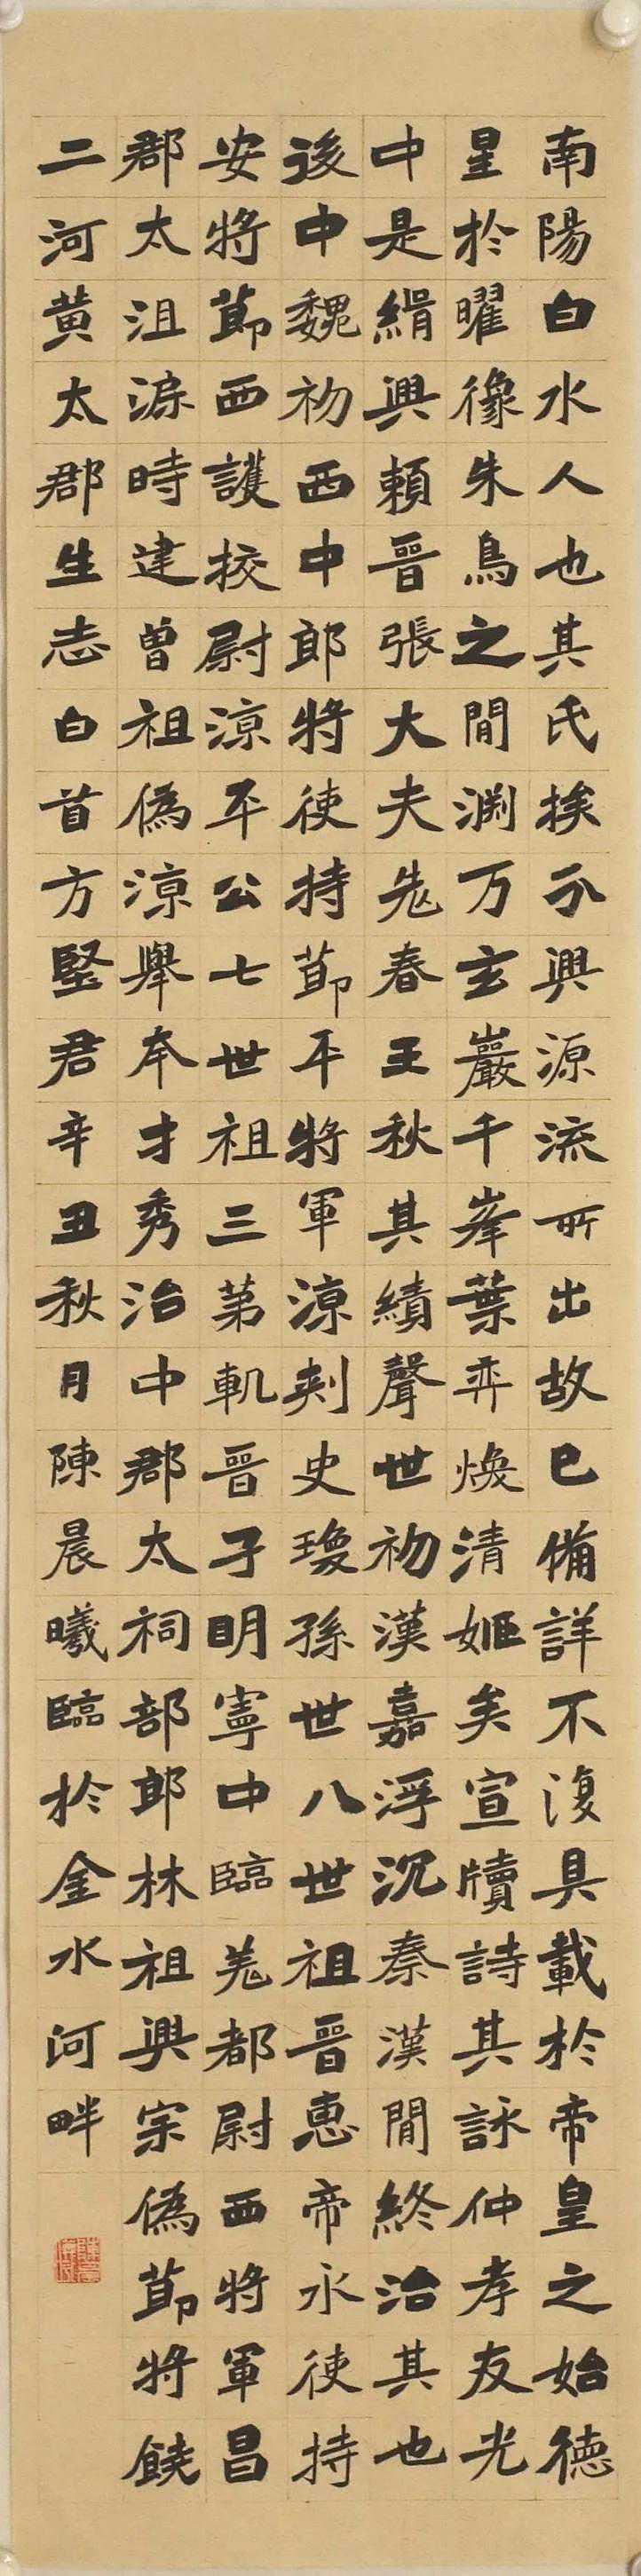 南陽白水人也其氏族分興源流所出故已備詳不復具載於帝皇之始德
星於曜像朱鳥之間渊万玄巖千峯葉弈煥清姬矣宣牘詩其詠仲孝友光
中是緝興賴晉張大夫老春王秋其績聲世初漢嘉浮沉秦漢間終治其也
後中魏初西中郎將使持節平將軍涼刺史瓊孫世八世祖晉惠帝永使持
安將節西護校尉涼平公七世祖三第軌晉子明寧中臨羌都尉西將軍昌
郡太沮渠時建曾祖偽涼舉本才秀治中郡太祠部郎林祖興宗偽節將饒
二河黃太郡生志白首方堅君辛丑秋月陳晨曦臨於金水河畔